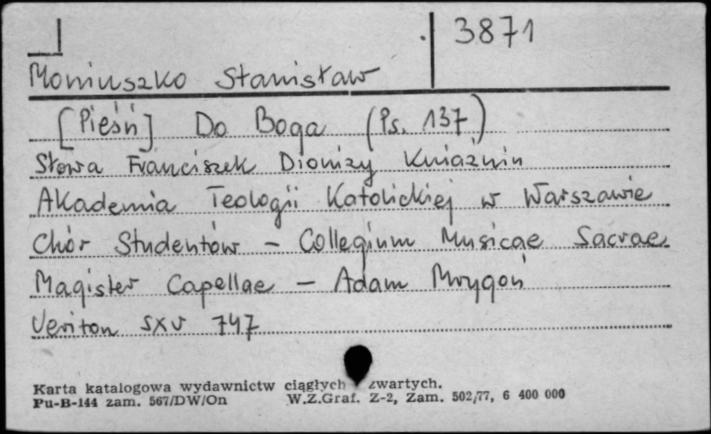 3871
Moniuszko Stanisław
[Pieśń] Do Boga (Ps. 137)
Słowa Franciszek Dionizy Kniaźnin
Akademia Teologii Katolickiej w Warszawie
Chór Studentów – Collegium Musicae Sacrae
Magister Capellae – Adam Mrygoń
Veriton SXV 747
Karta katalogowa wydawnictw ciągłych zwartych.
Pu-B-144 zam. 567/DW/On W.Z.Graf. Z-2, Zam. 502/77, 6 400 000